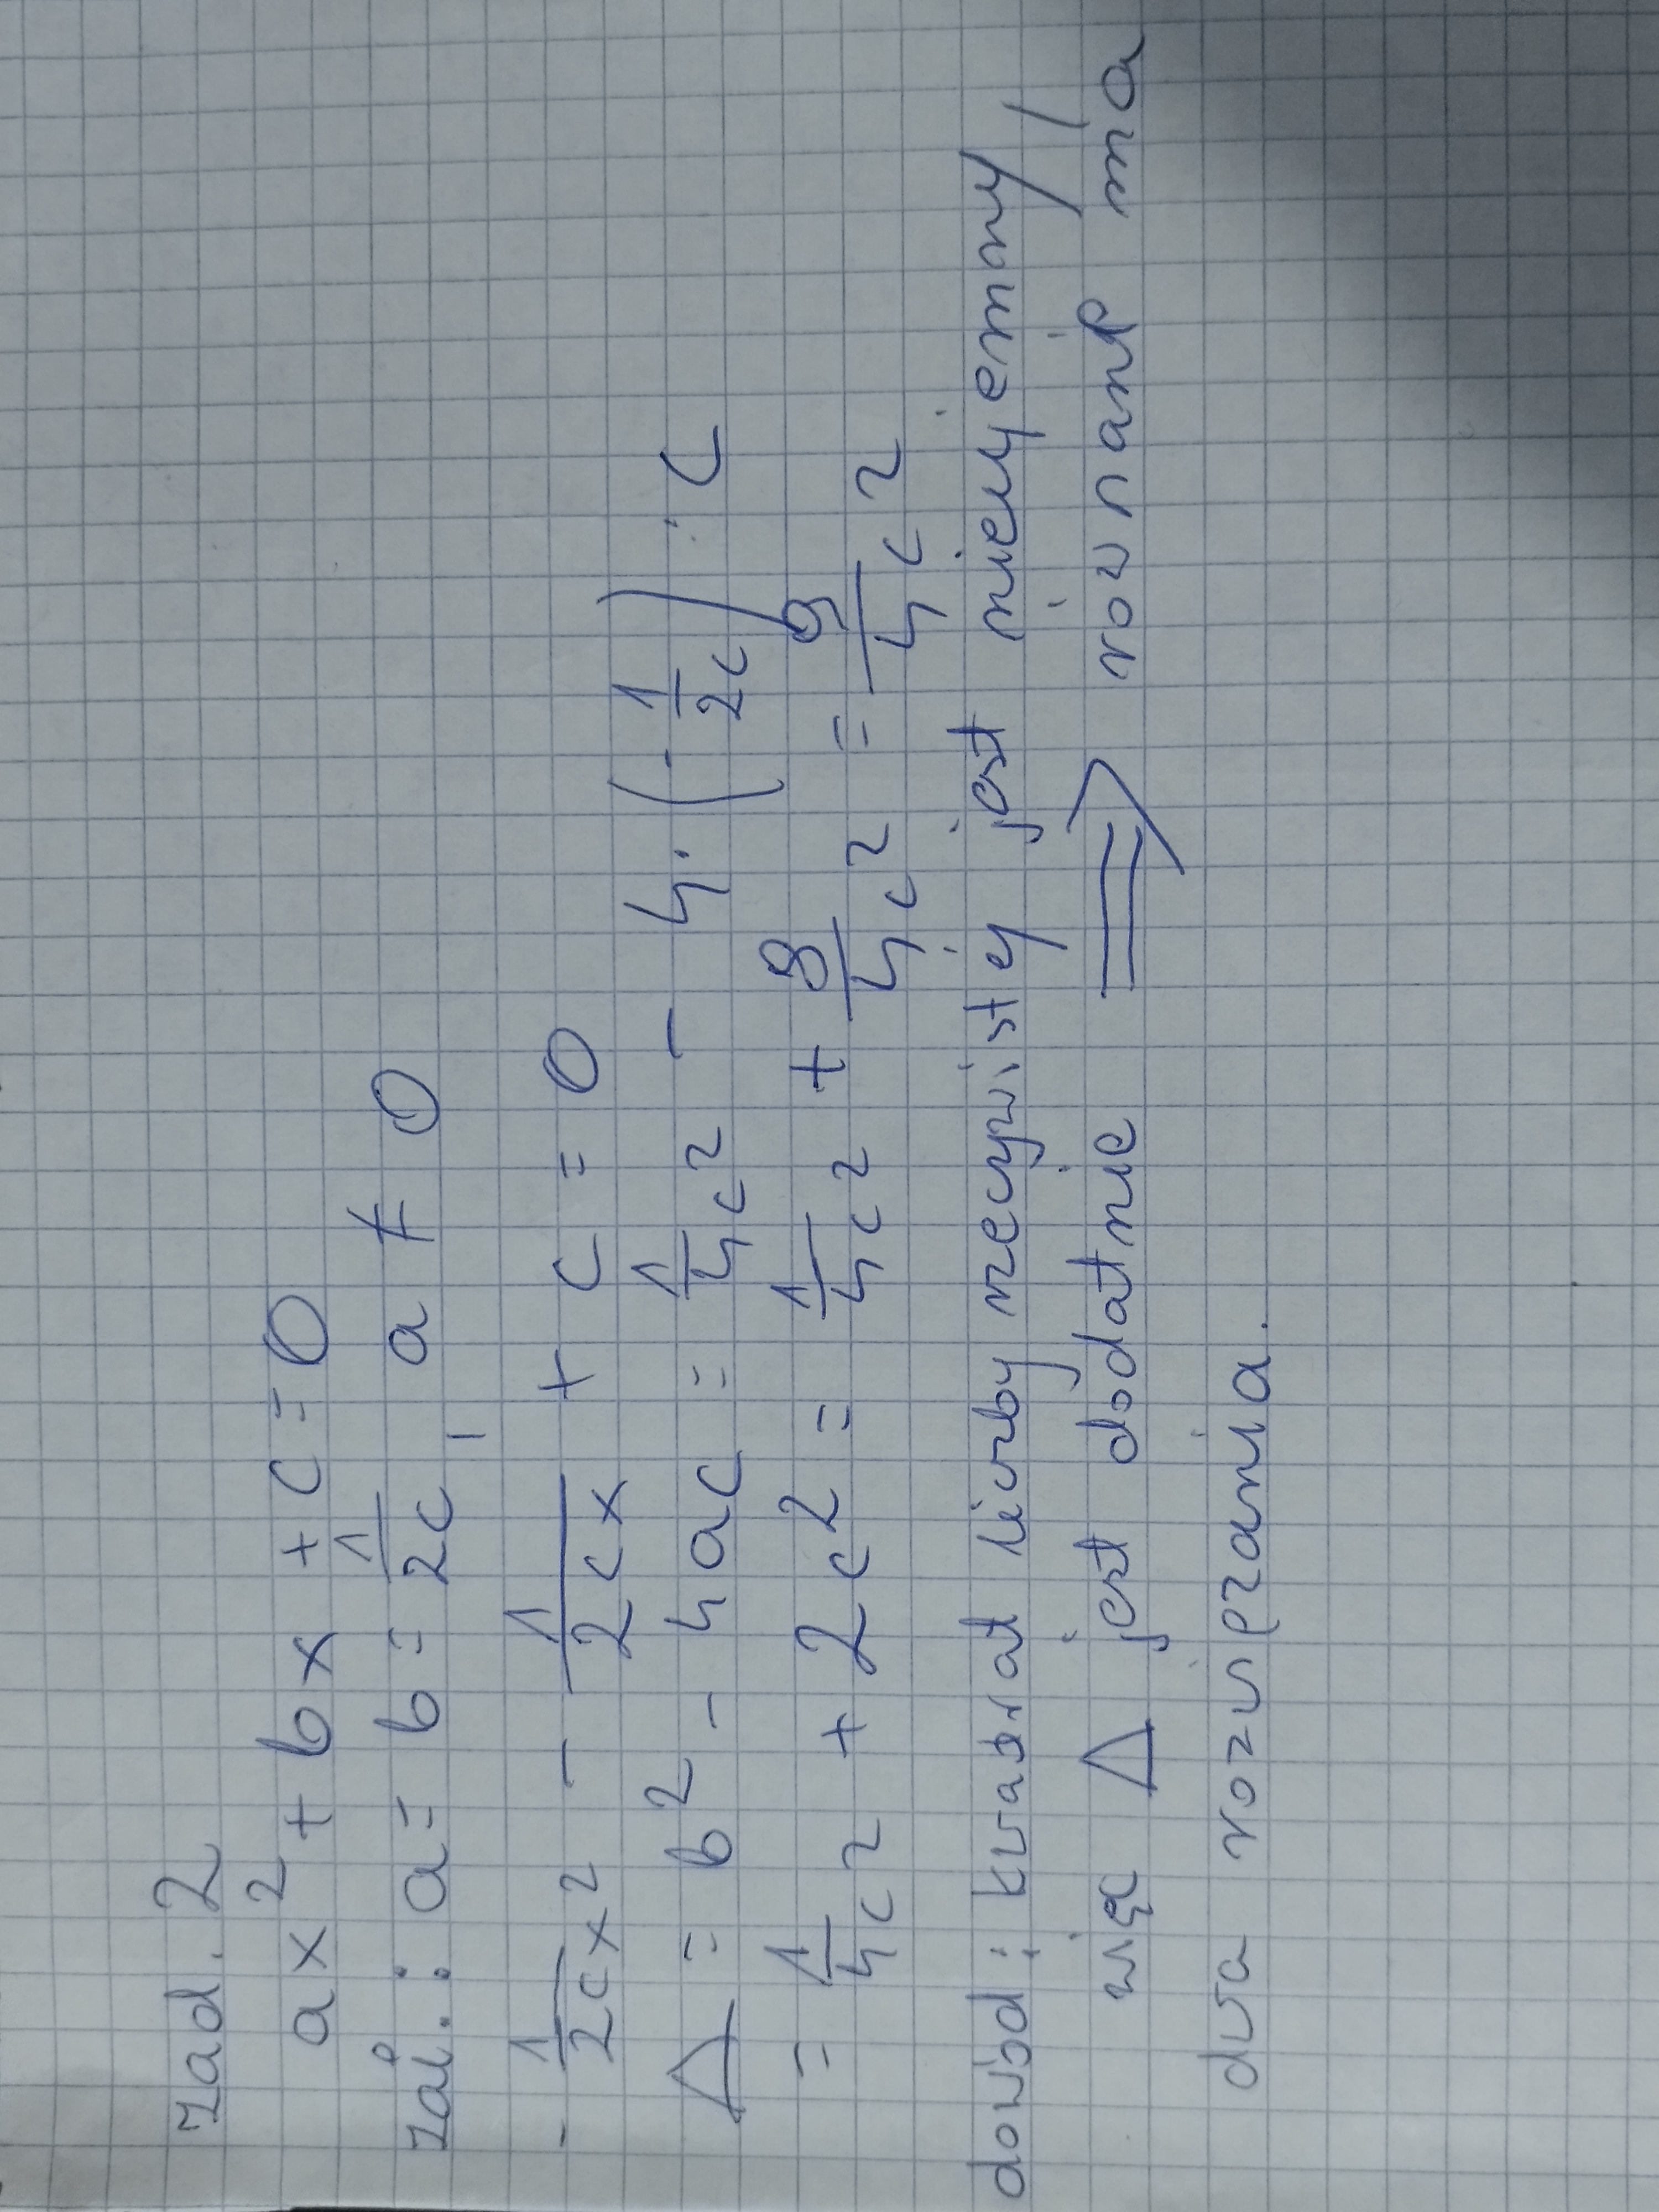 Zad. 2
ax² + bx + c = 0
Zał.: a = b = 1/2c, a ≠ 0
- 1/2cx² - 1/2cx + c = 0
Δ = b² - 4ac = 1/4c² - 4·(-1/2c)·c
= 1/4c² + 2c² = 1/4c² + 8/4c² = 9/4c²
dowód: kwadrat liczby rzeczywistej jest nieujemny,
więc Δ jest dodatnie ⟹ równanie ma
dwa rozwiązania.